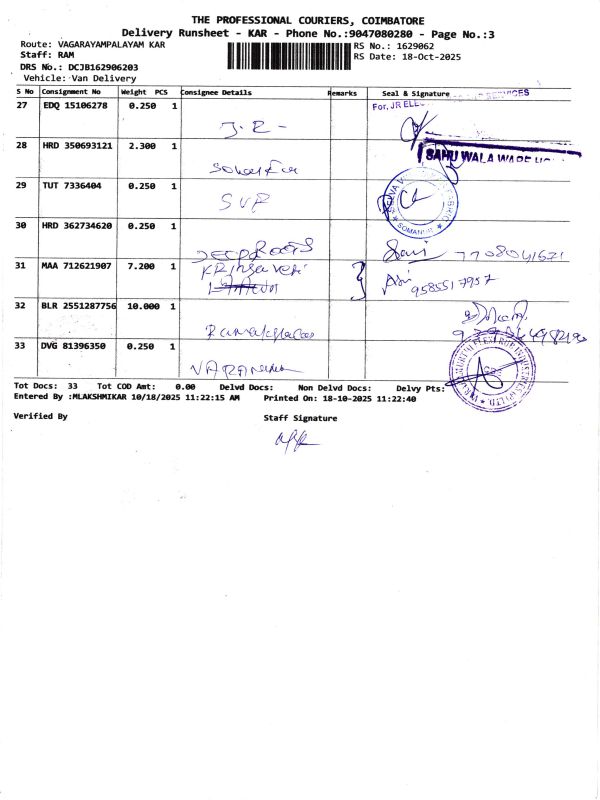 THE PROFESSIONAL COURIERS, COIMBATORE
Delivery Runsheet - KAR - Phone No.:9047080280 - Page No.:3
Route: VAGARAYAMPALAYAM KAR
RS No.: 1629062
Staff: RAM
RS Date: 18-Oct-2025
DRS No.: DCJB162906203
Vehicle: Van Delivery
S No Consignment No Weight PCS Consignee Details Remarks Seal & Signature
27 EDQ 15106278 0.250 1
For. JR ELEC SERVICES
J.R-
28 HRD 350693121 2.300 1
SAHU WALA WARE
29 TUT 7336404 0.250 1
SVR
SOMANUR
30 HRD 362734620 0.250 1
7708041571
31 MAA 712621907 7.200 1
9585517957
32 BLR 2551287756 10.000 1
33 DVG 81396350 0.250 1
Tot Docs: 33 Tot COD Amt: 0.00 Delvd Docs: Non Delvd Docs: Delvy Pts:
Entered By :MLAKSHMIKAR 10/18/2025 11:22:15 AM Printed On: 18-10-2025 11:22:40
Verified By Staff Signature